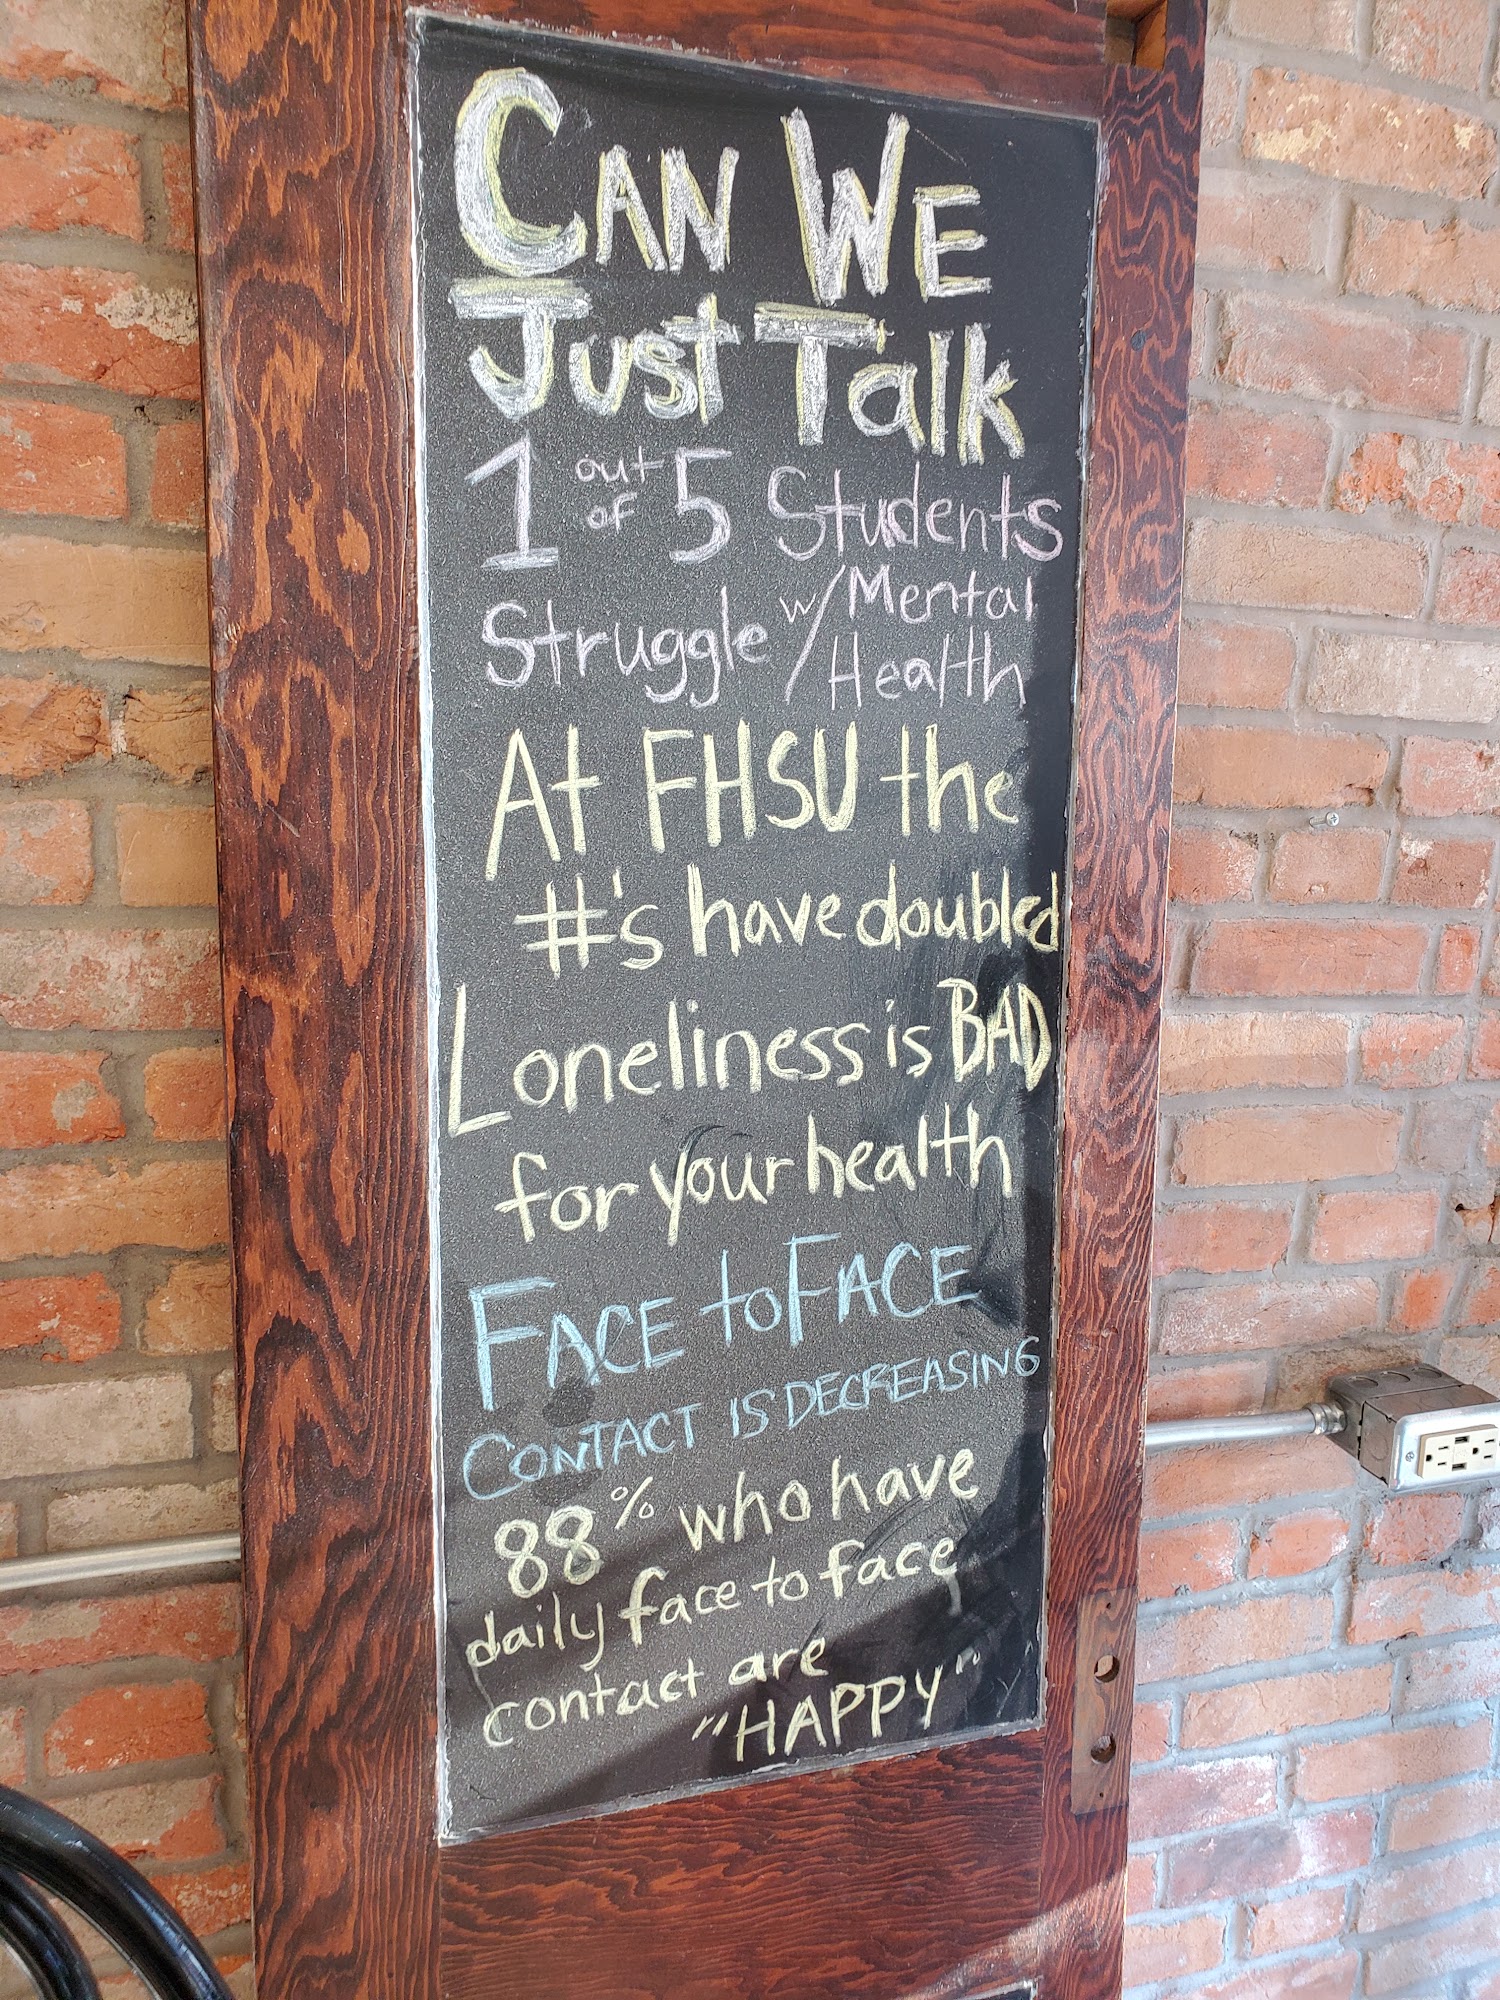 CAN WE
Just Talk
1 out of 5 Students
Struggle w/ Mental Health
At FHSU the
#'s have doubled
Loneliness is BAD
for your health
FACE to FACE
CONTACT IS DECREASING
88% who have
daily face to face
contact are
"HAPPY"